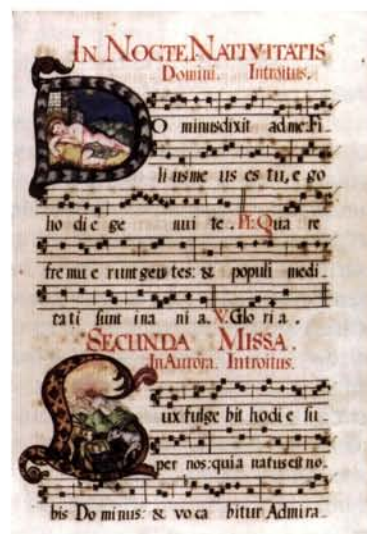 IN NOCTE NATIVITATIS
Domini. Introitus.
DO minus dixit ad me. Fi
li us me us es tu, e go
ho di e ge nui te. Ps. Qua re
fre mu e runt gen tes: & populi medi
ta ti sunt ina ni a. V. Glo ri a.
SECUNDA MISSA.
In Aurora. Introitus.
Lux fulge bit hodi e su
per nos: quia natus est no
bis Do minus: & vo ca bitur Admira